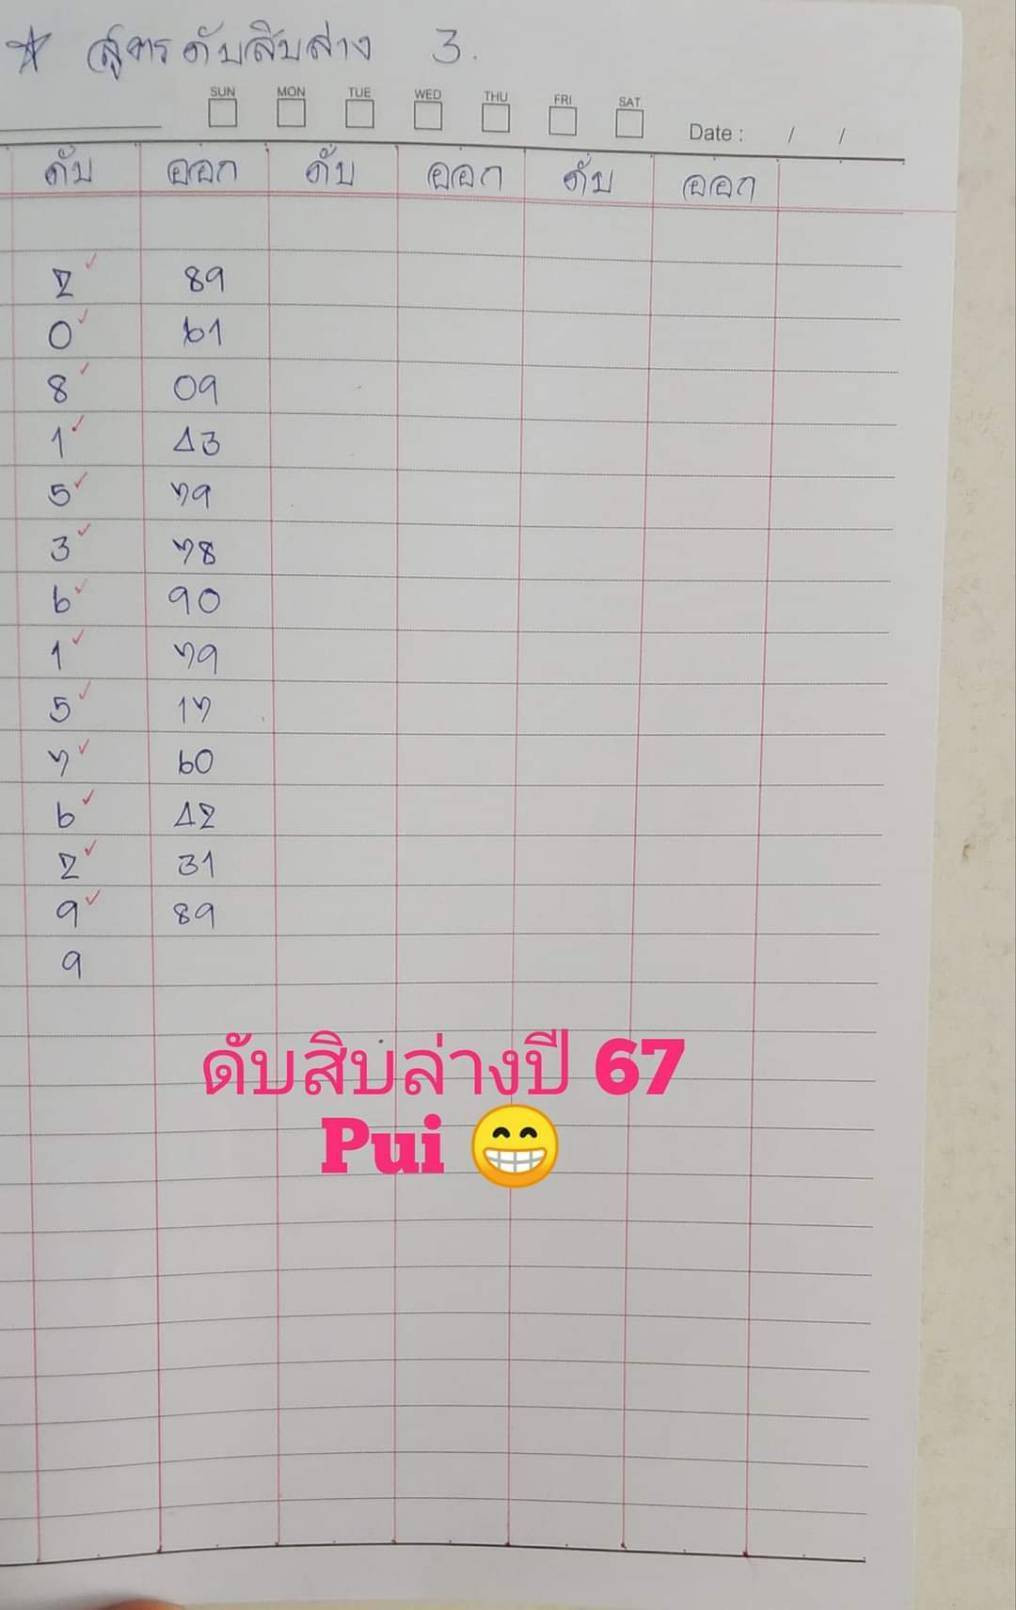 ☆ สูตรดับสิบล่าง 3.
SUN MON TUE WED THU FRI SAT
Date : / /
ดับ ออก ดับ ออก ดับ ออก
2 ✓ 89
0 ✓ 61
8 ✓ 09
1 ✓ 43
5 ✓ 79
3 ✓ 78
6 ✓ 90
1 ✓ 79
5 ✓ 17
7 ✓ 60
6 ✓ 42
2 ✓ 31
9 ✓ 89
9
ดับสิบล่างปี 67
Pui 😁